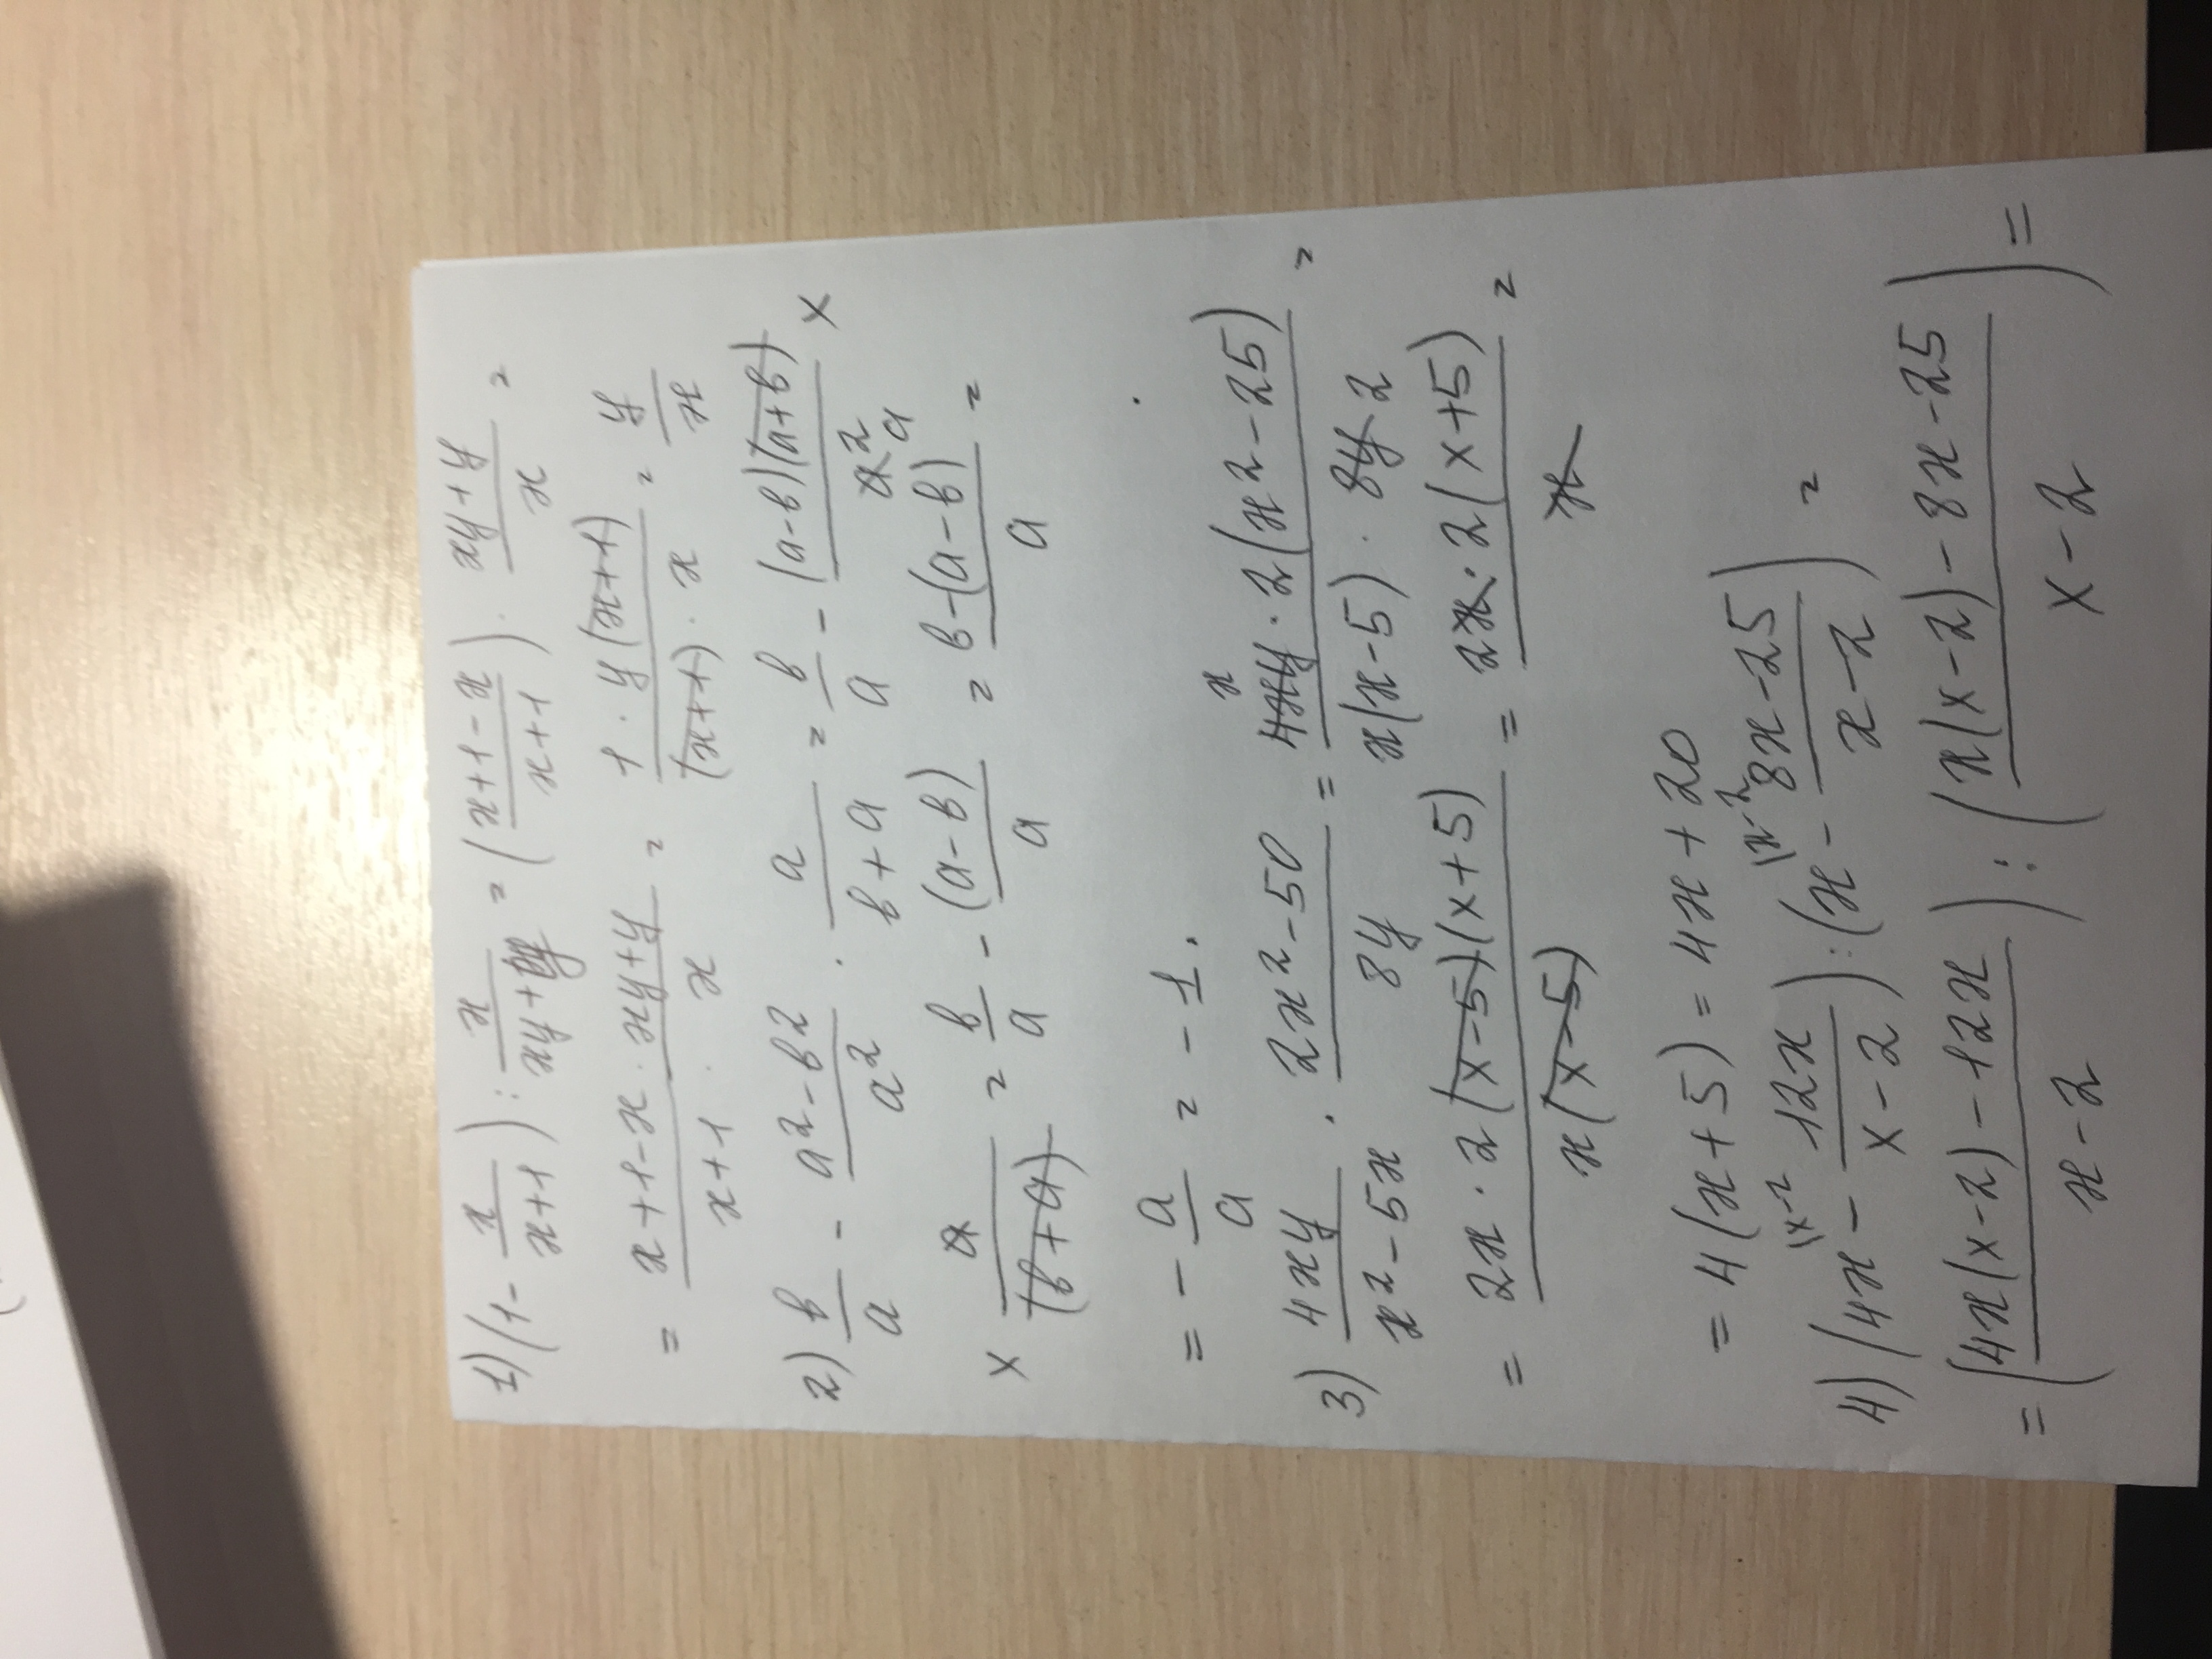 1) (1 - x/(x+1)) : x/(xy+y) = ((x+1-x)/(x+1)) · (xy+y)/x =
= (x+1-x · xy+y)/(x+1 · x) = (1 · y(x+1))/((x+1) · x) = y/x
2) b/a - (a²-b²)/a² · a/(b+a) = b/a - ((a-b)(a+b))/a² a ×
× a/(b+a) = b/a - (a-b)/a = (b-(a-b))/a =
= - a/a = - 1.
3) 4xy/(x²-5x) · (2x²-50)/8y = (4xy x · 2(x²-25))/(x(x-5) · 8y 2) =
= (2x · 2(x-5)(x+5))/(x(x-5)) = (2x · 2(x+5))/x =
= 4(x+5) = 4x+20
4) (4x \x-2 - 12x/(x-2)) : (x \x-2 - (8x-25)/(x-2)) =
= ((4x(x-2)-12x)/(x-2)) : ((x(x-2)-8x-25)/(x-2)) =